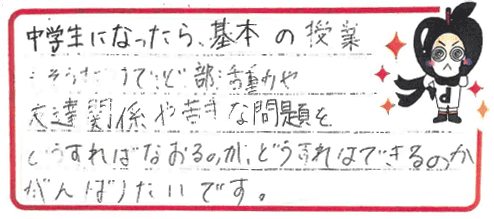 中学生になったら、基本の授業
部活動や
友達関係や苦手な問題を
どうすればなおるのか、どうすればできるのか
がんばりたいです。